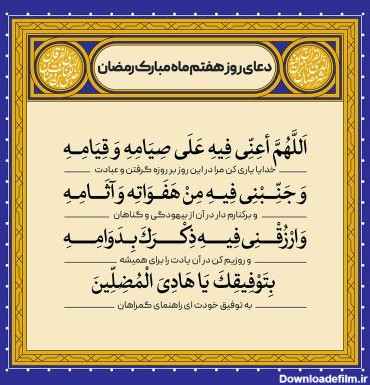 دعای روز هفتم ماه مبارک رمضان
اَللَّهُمَّ أعِنّی فِیهِ عَلَی صِیَامِهِ وَ قِیَامِـهِ
خدایا یاری کن مرا در این روز بر روزه گرفتن و عبادت
وَ جَنِّـبْنِی فِیـهِ مِنْ هَفَوَاتِهِ وَ آثَـامِـهِ
و برکنارم دار در آن از بیهودگی و گناهان
وَ ارْزُقْـنِی فِیـهِ ذِکْـرَكَ بِـدَوَامِـهِ
و روزیم کن در آن یادت را برای همیشه
بِتَوْفِیقِكَ یَا هَادِیَ الْمُضِلِّینَ
به توفیق خودت ای راهنمای گمراهان
Downloadefilm.ir